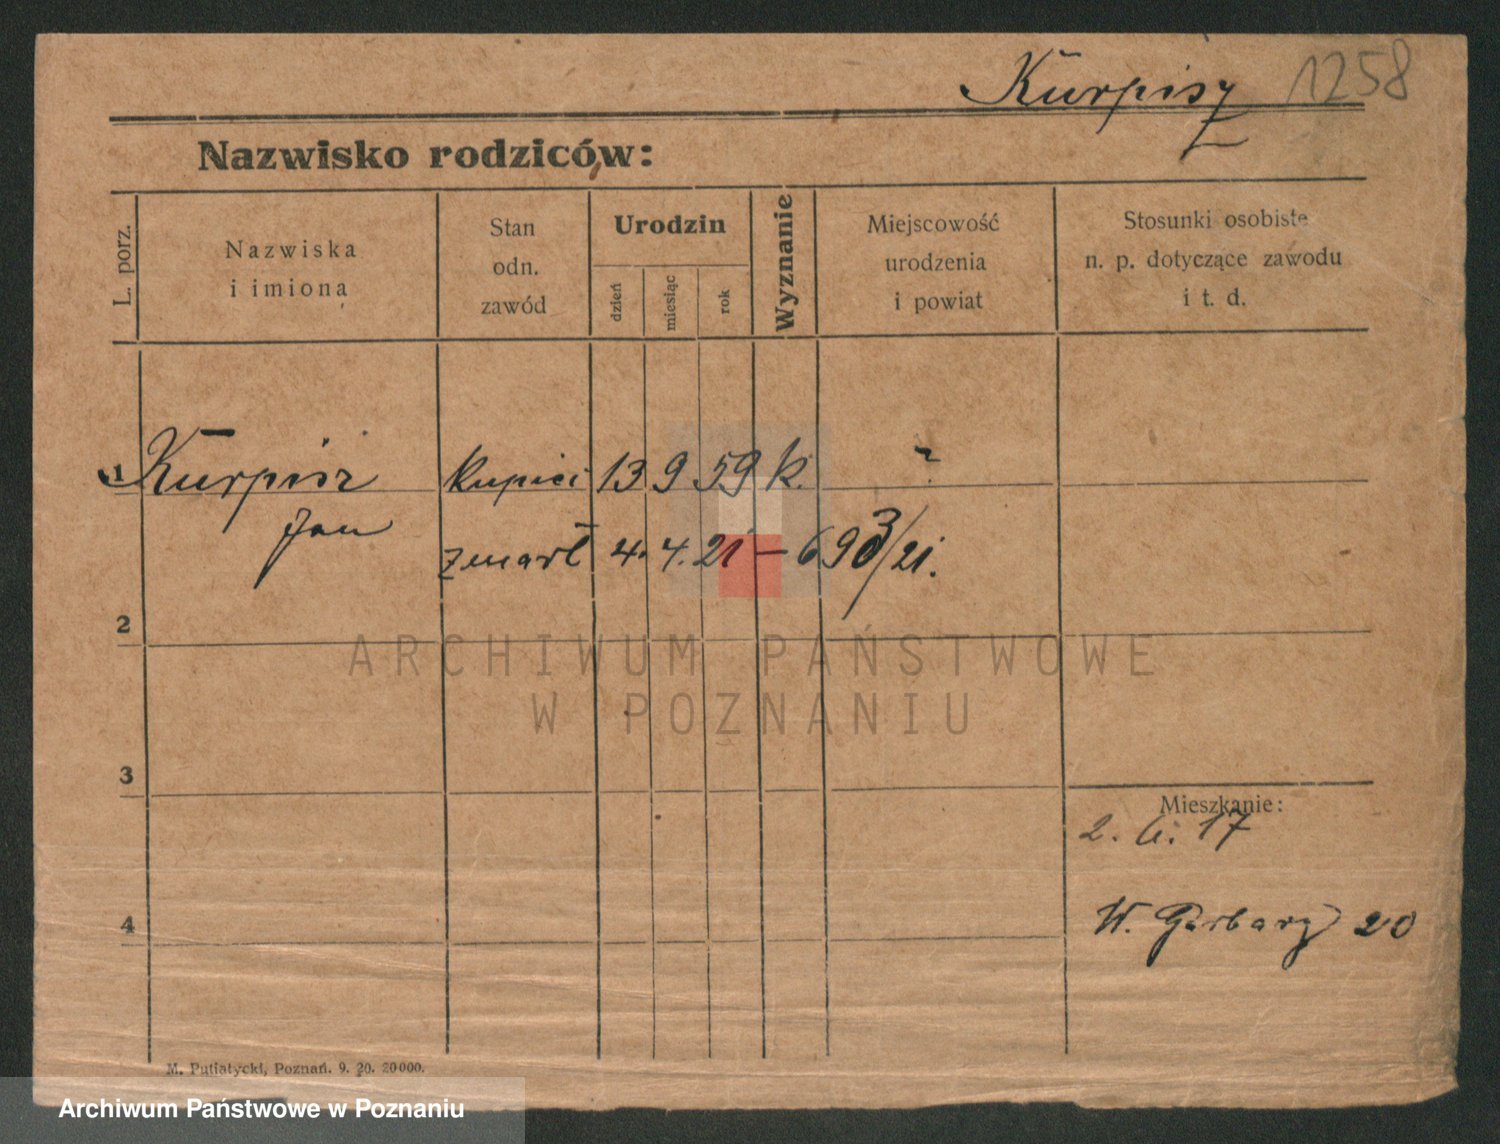 Kurpisz 1258
Nazwisko rodziców:
L. porz.
Nazwiska
i imiona
Stan
odn.
zawód
Urodzin
dzień
miesiąc
rok
Wyznanie
Miejscowość
urodzenia
i powiat
Stosunki osobiste
n. p. dotyczące zawodu
i t. d.
1 Kurpisz kupiec 13 9 59 k. ?
Jan
zmarł 4. 4. 21 – 693/21.
2
3
Mieszkanie:
2. 6. 17
4
W. Garbary 20
M. Putiatycki, Poznań. 9. 20. 20000.
ARCHIWUM PAŃSTWOWE
W POZNANIU
Archiwum Państwowe w Poznaniu